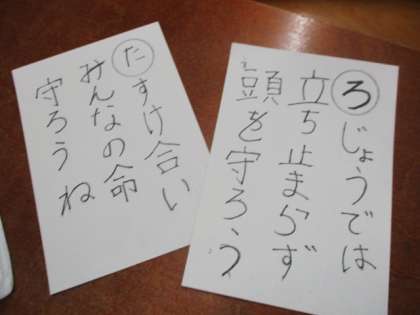 たすけ合い
みんなの命
守ろうね
ろじょうでは
立ち止まらず
頭を守ろう